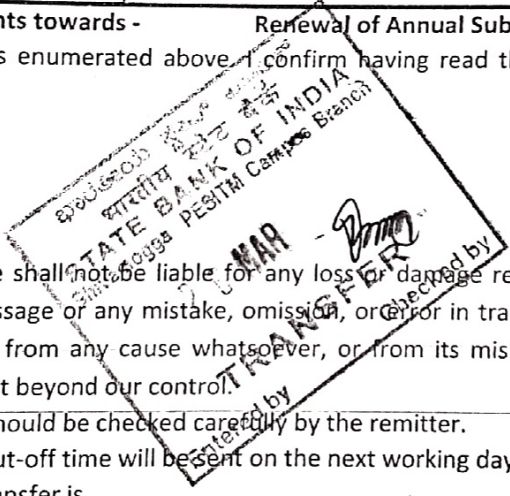 nts towards - Renewal of Annual Sub
s enumerated above. I confirm having read t
ಭಾರತೀಯ ಸ್ಟೇಟ್ ಬ್ಯಾಂಕ್
भारतीय स्टेट बैंक
STATE BANK OF INDIA
Shivamogga PESITM Campus Branch
MAR
TRANSFER
Entered by Checked by
e shall not be liable for any loss or damage re
ssage or any mistake, omission, or error in tra
from any cause whatsoever, or from its mis
t beyond our control.
hould be checked carefully by the remitter.
ut-off time will be sent on the next working day
ansfer is